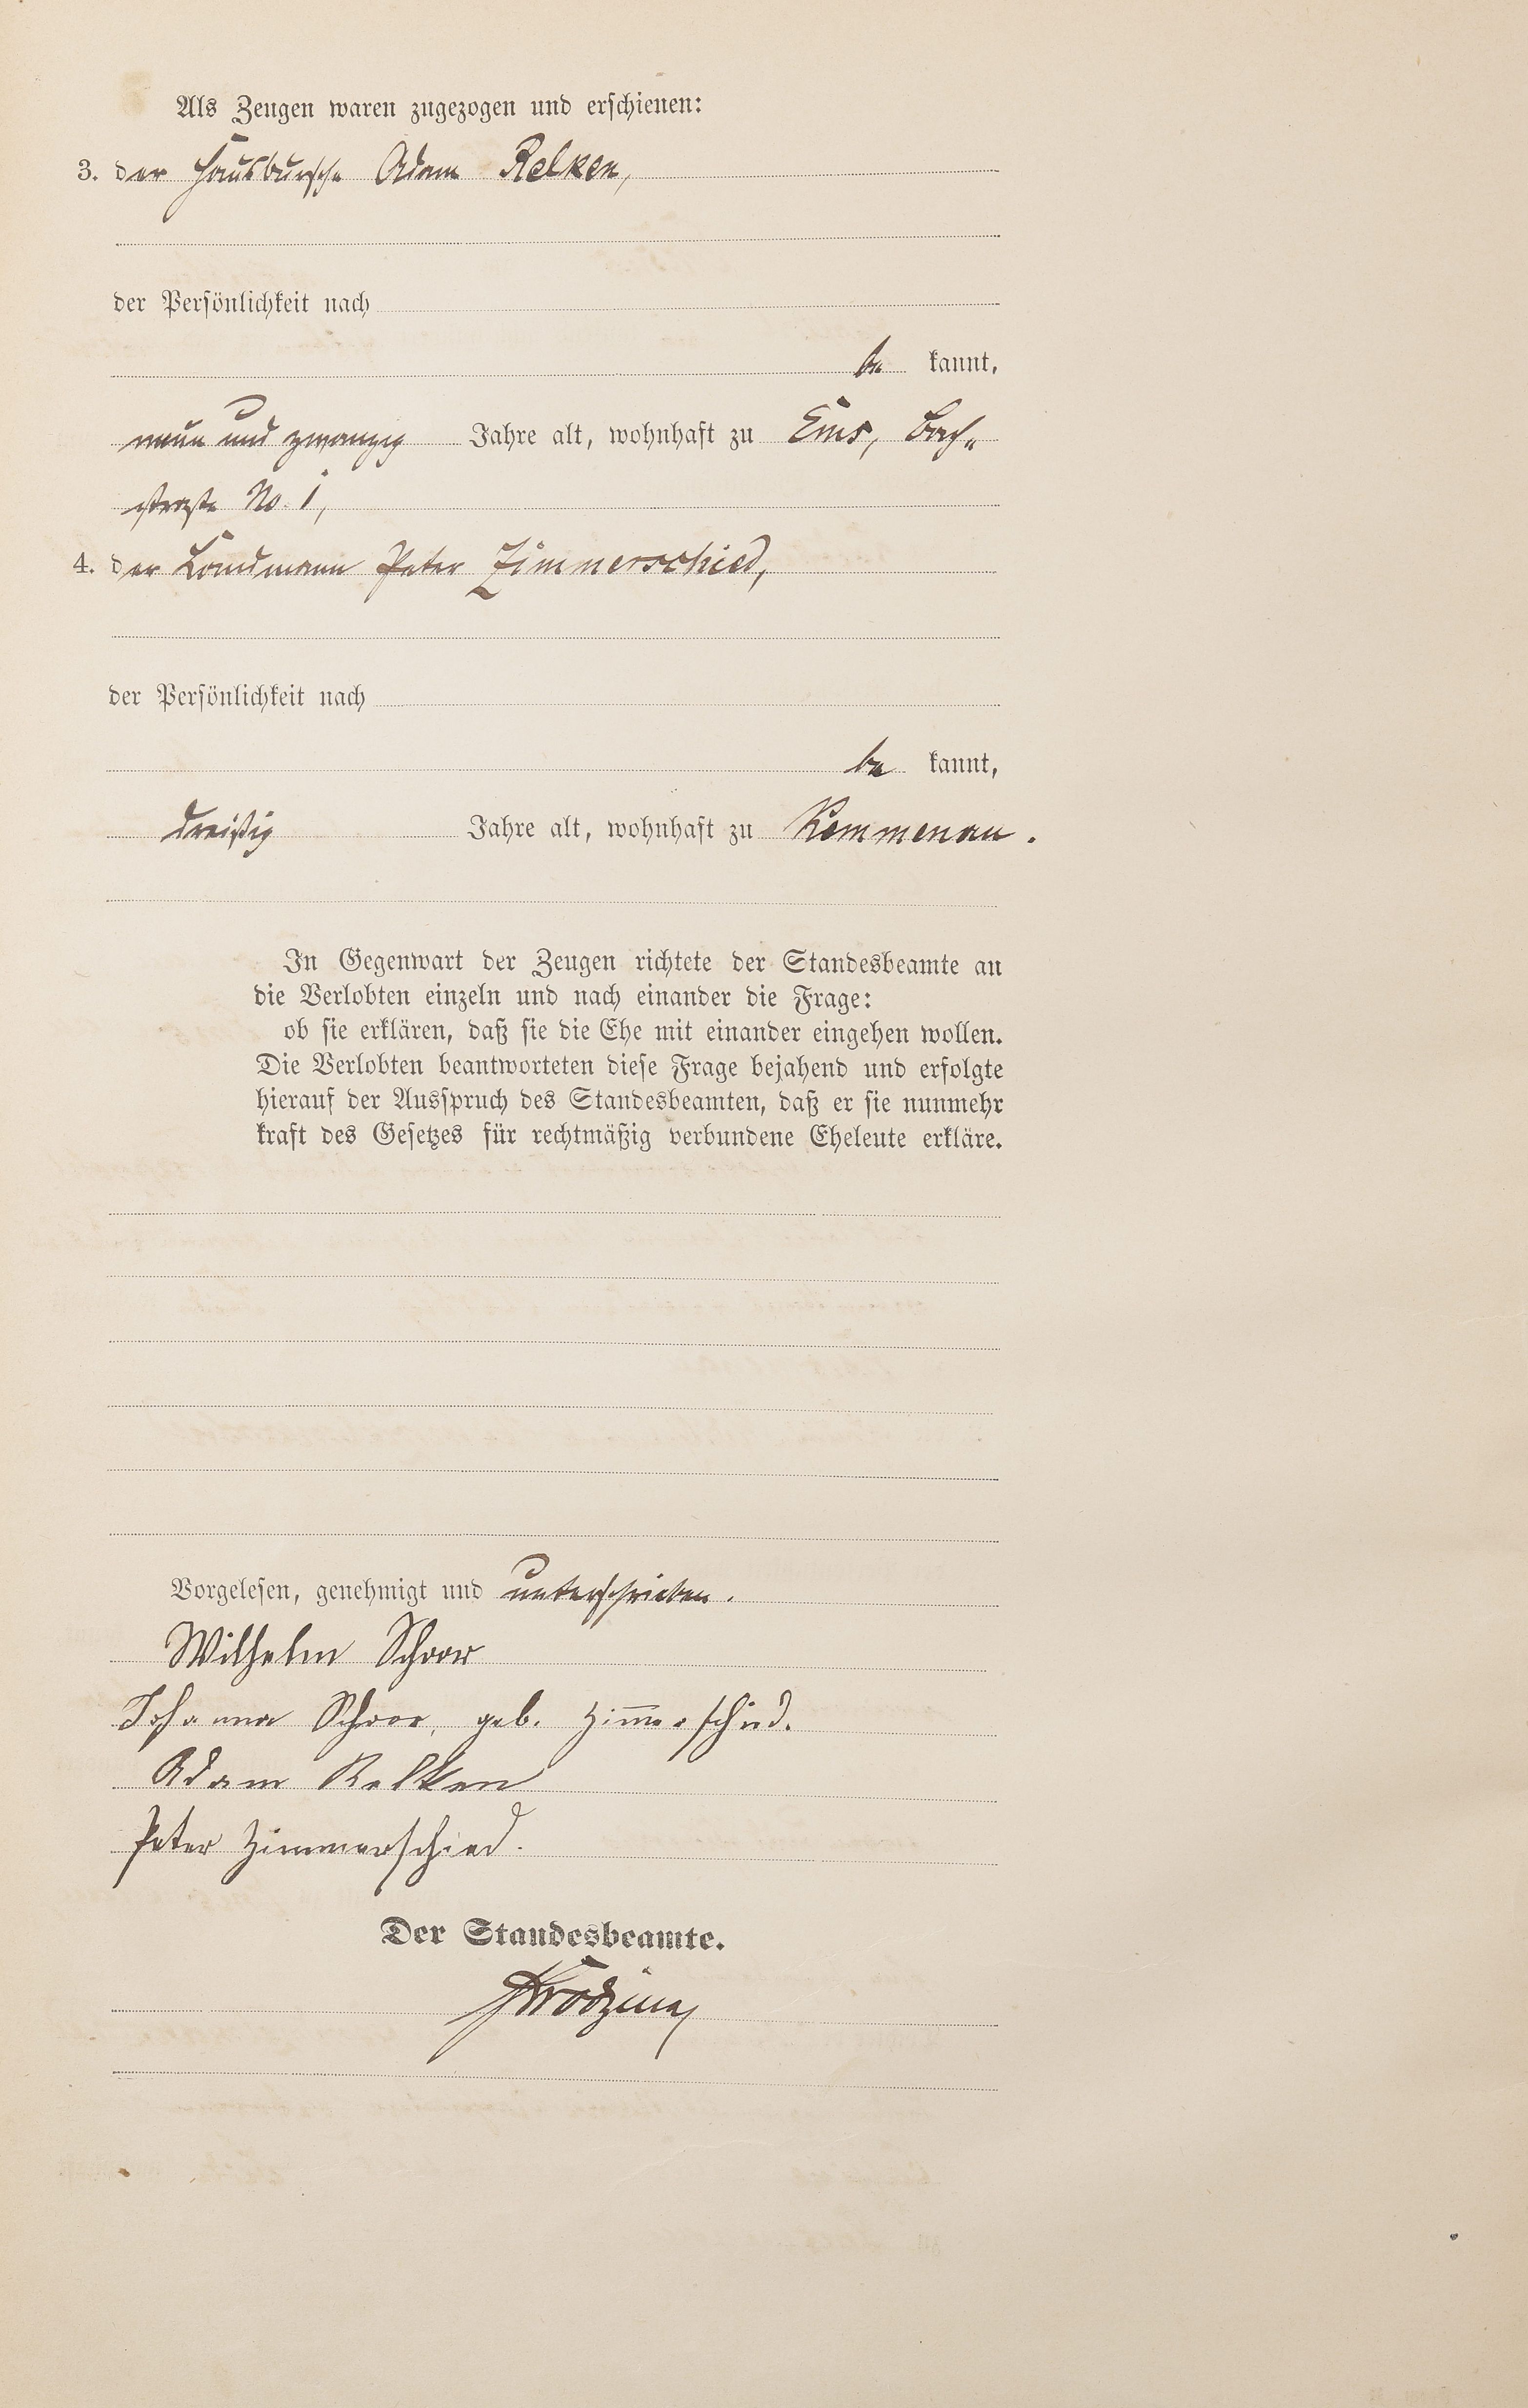 Als Zeugen waren zugezogen und erschienen:
3. der Hausbursche Adam Relken,
der Persönlichkeit nach
be kannt,
neun und zwanzig Jahre alt, wohnhaft zu Ems, Bach-
straße No. 1,
4. der Landmann Peter Zimmerschied,
der Persönlichkeit nach
be kannt,
dreißig Jahre alt, wohnhaft zu Kemmenau.
In Gegenwart der Zeugen richtete der Standesbeamte an
die Verlobten einzeln und nach einander die Frage:
ob sie erklären, daß sie die Ehe mit einander eingehen wollen.
Die Verlobten beantworteten diese Frage bejahend und erfolgte
hierauf der Ausspruch des Standesbeamten, daß er sie nunmehr
kraft des Gesetzes für rechtmäßig verbundene Eheleute erkläre.
Vorgelesen, genehmigt und unterschrieben.
Wilhelm Schoor
Johanna Schoor, geb. Zim̅erschied.
Adam Relken
Peter Zimmerschied.
Der Standesbeamte.